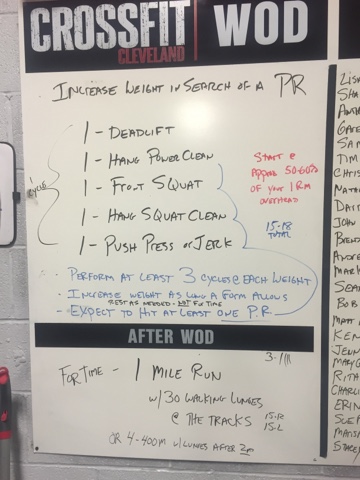 CROSSFIT
CLEVELAND
WOD
INCREASE WEIGHT IN SEARCH OF A PR
1 - DEADLIFT
1 - HANG POWER CLEAN
1 - FRONT SQUAT
1 - HANG SQUAT CLEAN
1 - PUSH PRESS OR JERK
1 CYCLE
START @
APPROX 50-60%
OF YOUR 1RM
OVERHEAD
15-18
TOTAL
• PERFORM AT LEAST 3 CYCLES @ EACH WEIGHT
• INCREASE WEIGHT AS LONG A FORM ALLOWS
REST AS NEEDED - NOT FOR TIME
• EXPECT TO HIT AT LEAST ONE P.R
AFTER WOD
FOR TIME - 1 MILE RUN
W/30 WALKING LUNGES
@ THE TRACKS
15-R
15-L
OR 4-400M W/LUNGES AFTER 2nd
SAM
TIM
JOHN
SEAN
BOB
MATT
KEN
RITA
ERIN